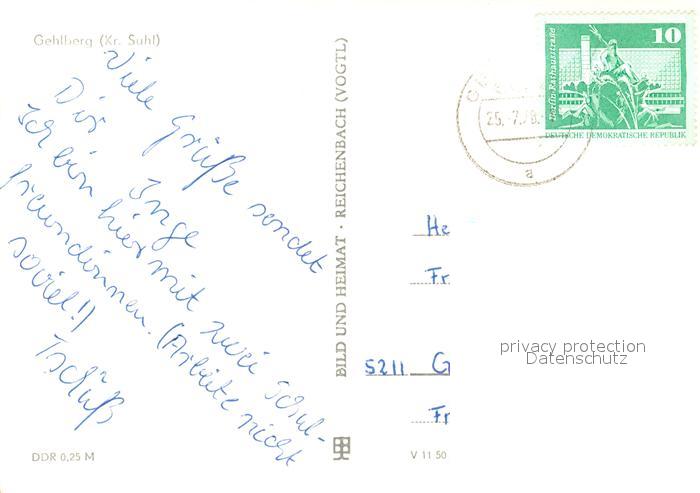 Gehlberg (Kr. Suhl)
Viele Grüße sendet
Dir Inge
Ich bin hier mit zwei Schul-
freundinnen. (Arbeite nicht
soviel!)
Tschüß
DDR 0,25 M
BILD UND HEIMAT · REICHENBACH (VOGTL)
V 11 50
10
Berlin-Rathausstraße
DEUTSCHE DEMOKRATISCHE REPUBLIK
a
He
Fr
5211 G
Fr
privacy protection
Datenschutz